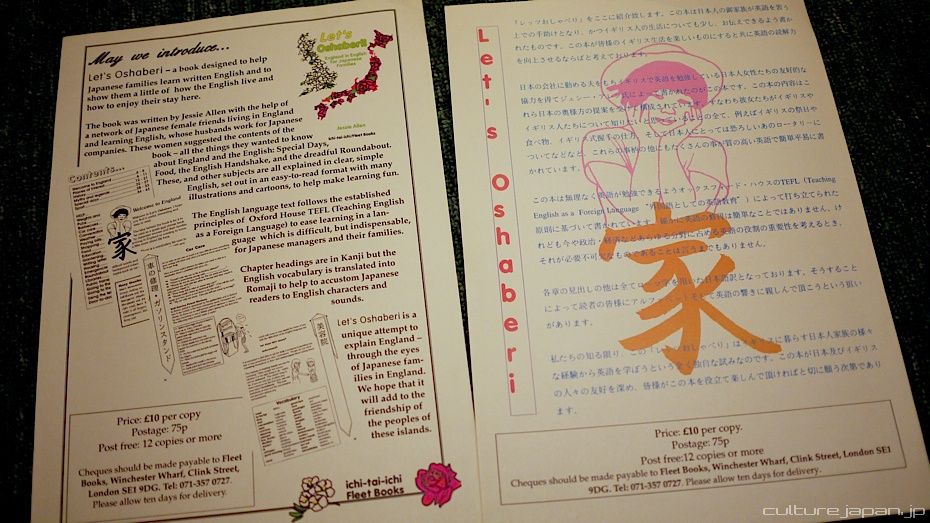 May we introduce...
Let's Oshaberi – a book designed to help
Japanese families learn written English and to
show them a little of how the English live and
how to enjoy their stay here.
The book was written by Jessie Allen with the help of
a network of Japanese female friends living in England
and learning English, whose husbands work for Japanese
companies. These women suggested the contents of the
book – all the things they wanted to know
about England and the English: Special Days,
Food, the English Handshake, and the dreadful Roundabout.
These, and other subjects are all explained in clear, simple
English, set out in an easy-to-read format with many
illustrations and cartoons, to help make learning fun.
The English language text follows the established
principles of Oxford House TEFL (Teaching English
as a Foreign Language) to ease learning in a lan-
guage which is difficult, but indispensable,
for Japanese managers and their families.
Chapter headings are in Kanji but the
English vocabulary is translated into
Romaji to help to accustom Japanese
readers to English characters and
sounds.
Let's Oshaberi is a
unique attempt to
explain England –
through the eyes
of Japanese fam-
ilies in England.
We hope that it
will add to the
friendship of
the peoples of
these islands.
Let's
Oshaberii
England in English
For Japanese
Families
Jessie Allen
ichi-tai-ichi/Fleet Books
Contents...
Welcome to England
家
Car Care
車の修理・ガソリンスタンド
美容院
Vocabulary
Price: £10 per copy
Postage: 75p
Post free: 12 copies or more
Cheques should be made payable to Fleet
Books, Winchester Wharf, Clink Street,
London SE1 9DG. Tel: 071-357 0727.
Please allow ten days for delivery.
ichi-tai-ichi
Fleet Books
Let's Oshaberi
「レッツおしゃべり」をここに紹介致します。この本は日本人の御家族が英語を習う
上での手助けとなり、かつイギリス人の生活についても少し、お伝えできるよう書か
れたものです。この本が皆様のイギリス生活を楽しいものにすると共に英語の読解力
を向上させるならばと考えております。
日本の会社に勤める夫をもちイギリスで英語を勉強している日本人女性たちの友好的な
協力を得てジェシー 氏によって書かれたのがこの本です。この本の内容はこ
れらの日本の奥様方の提案を受けて構成されています。すなわち彼女たちがイギリスや
イギリス人たちについて知りたいと思っていることの全て、例えばイギリスの祭日や
食べ物、イギリス式握手の仕方、そして日本人にとっては恐ろしいあのロータリーに
ついてなどなど。これらの事柄の他にもたくさんの事が質の高い英語で簡単平易に書
かれています。
この本は無理なく英語が勉強できるようオックスフォード・ハウスのTEFL (Teaching
English as a Foreign Language “外国語としての英語教育”) によって打ち立てられた
原則に基づいて書かれています。確かに英語の勉強は簡単なことではありません、け
れども今や政治・経済などあらゆる分野に占める英語の役割の重要性を考えるとき、
それが必要不可欠なものであることは言うまでもありません。
各章の見出しの他は全てローマ字を用いた日本語訳となっております。そうすること
によって読者の皆様にアルファベットそして英語の響きに親しんで頂こうという狙い
があります。
私たちの知る限り、この「レッツおしゃべり」はイギリスに暮らす日本人家族の様々
な経験から英語を学ぼうという全く独自な試みなのです。この本が日本及びイギリス
の人々の友好を深め、皆様がこの本を役立て楽しんで頂ければと切に願う次第であり
ます。
家
Price: £10 per copy.
Postage: 75p
Post free:12 copies or more
Cheques should be made payable to Fleet Books, Winchester Wharf, Clink Street, London SE1
9DG. Tel: 071-357 0727. Please allow ten days for delivery.
culturejapan.jp